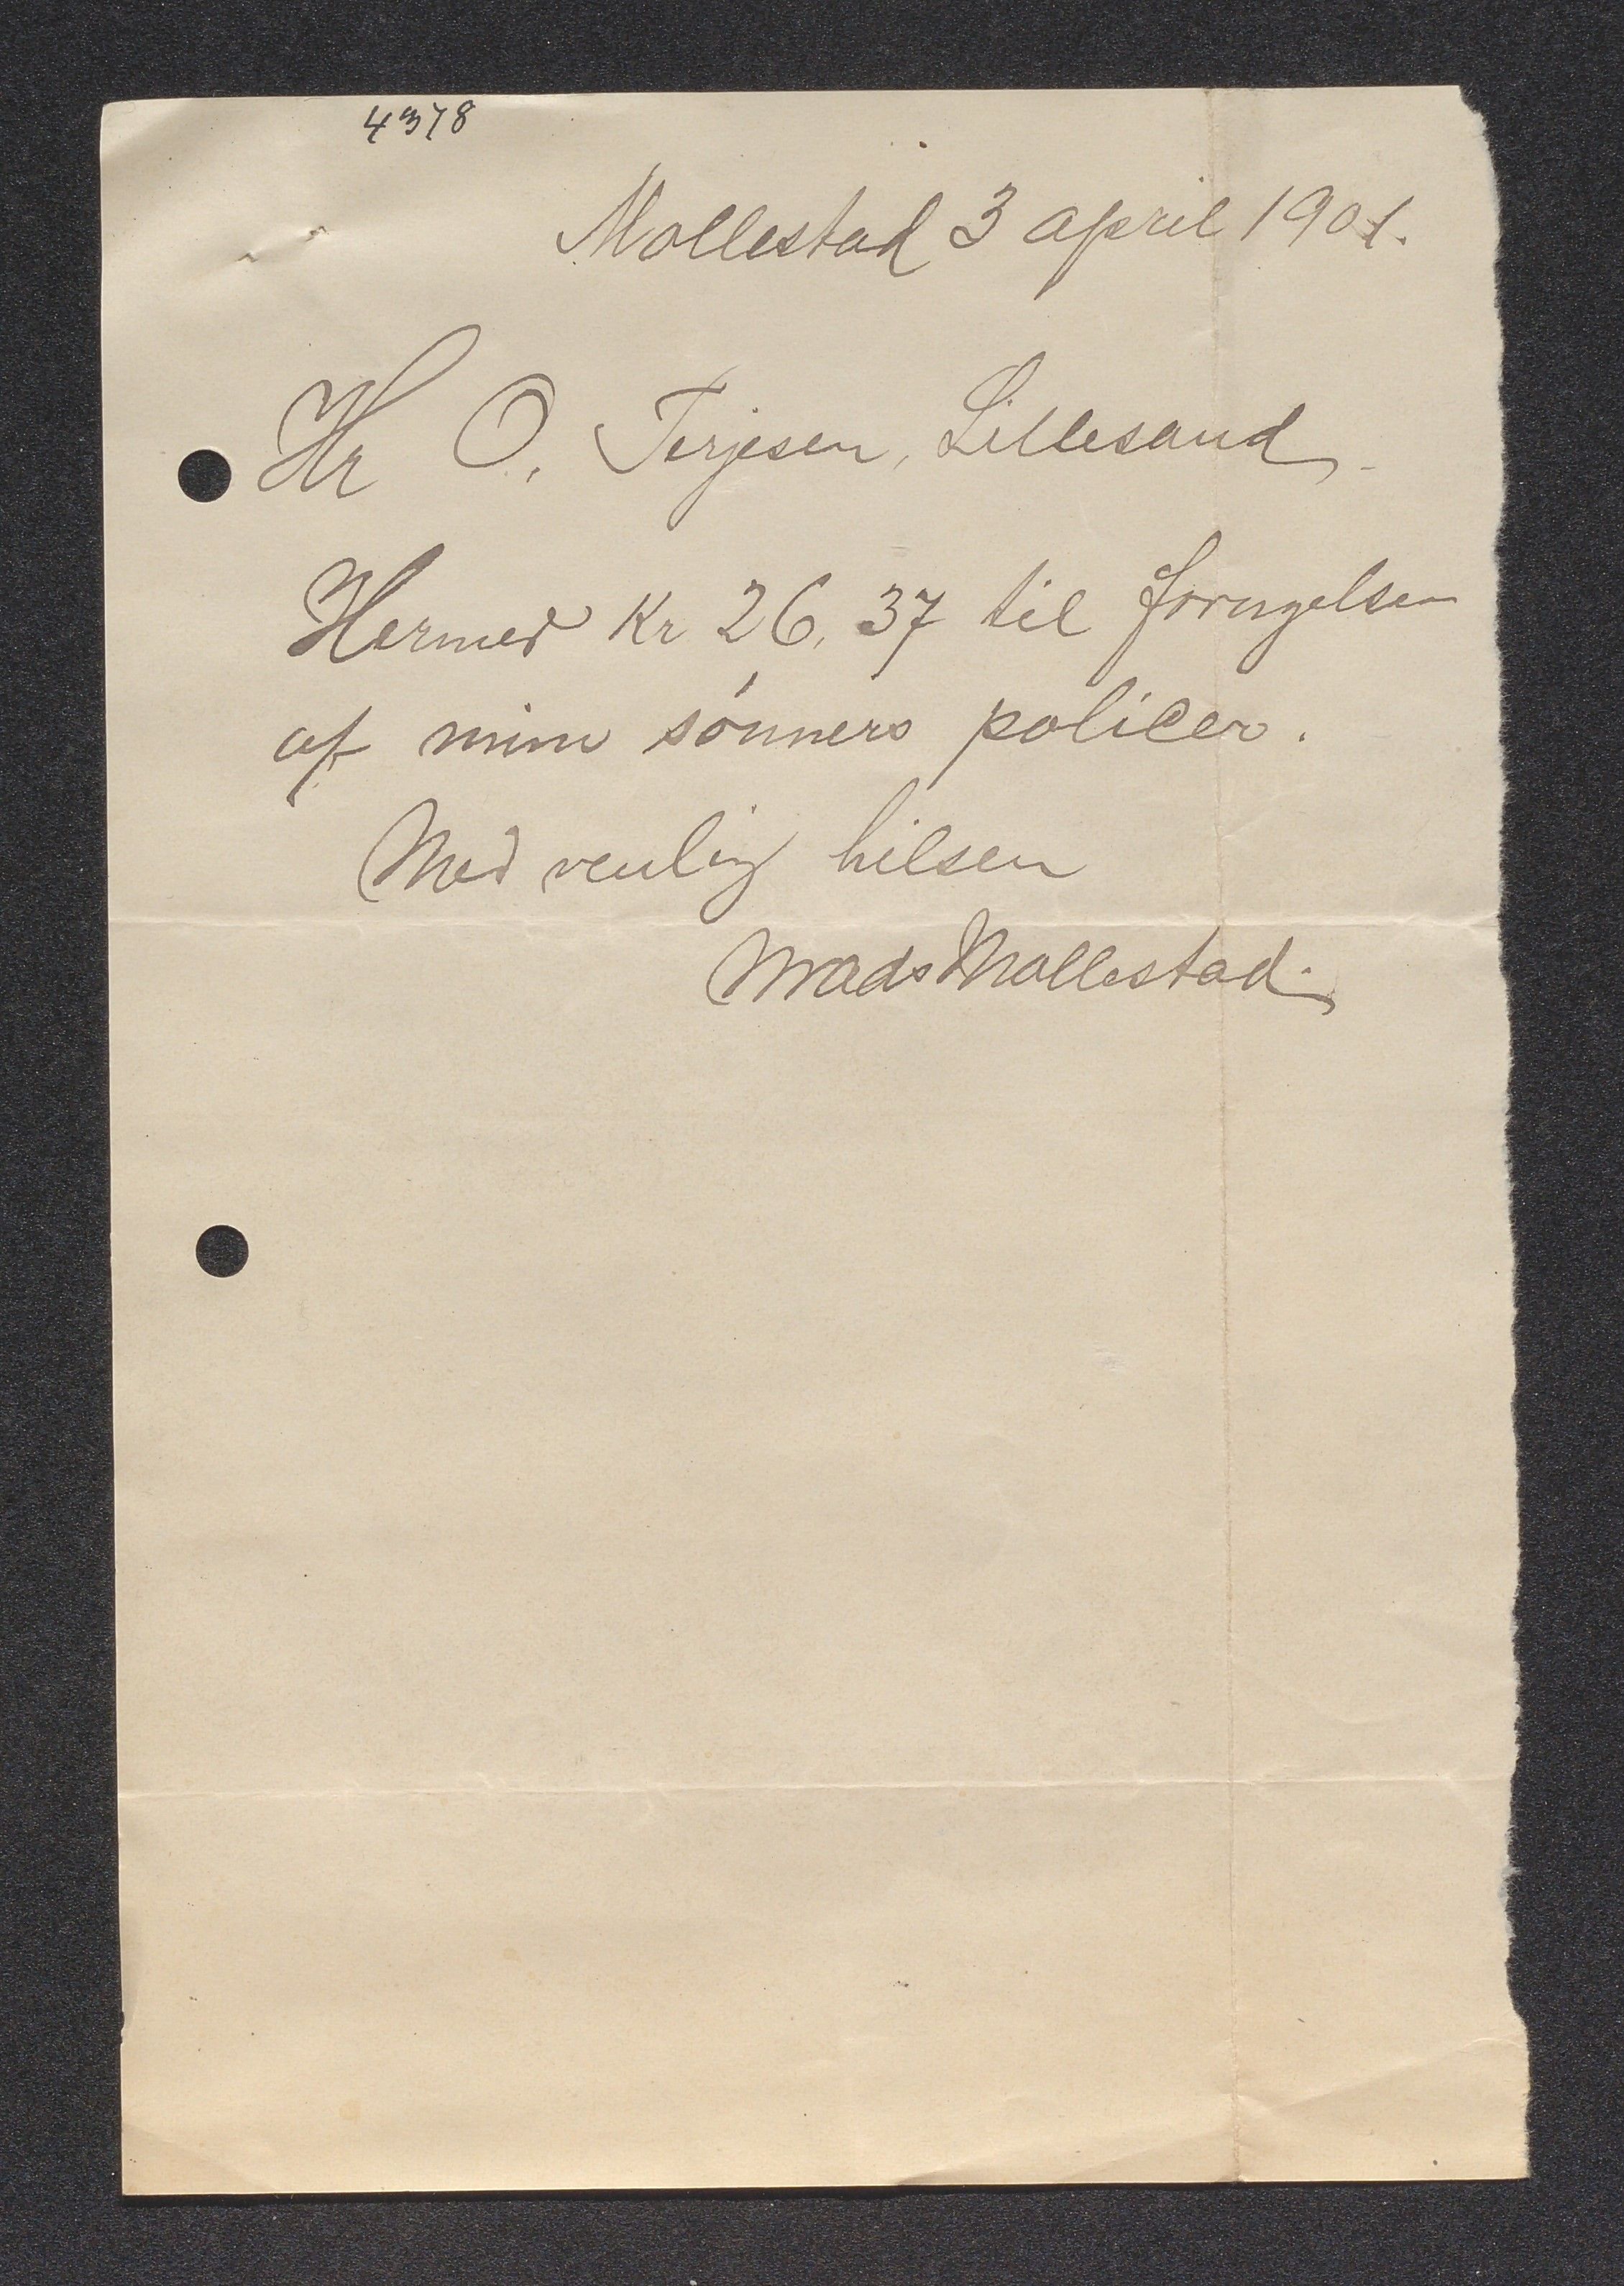 4378
Mollestad 3 april 1901.
Hr O. Terjesen, Lillesand.
Hermed Kr 26,37 til fornyelsen
af mine sónners policer.
Med venlig hilsen
Mads Mollestad.